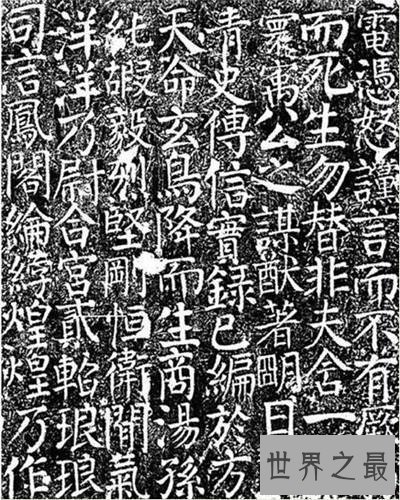 電憑怒讜言而不有厥
而死生勿替非夫含一
寰寓公之謀猷著明日
青史傳信實錄已編於方
天命玄鳥降而生商湯孫
純嘏毅烈堅剛恒衛閒氣
洋洋乃尉合宮貳軺琅琅
司言鳳閣綸綍煌煌乃作
世界之最